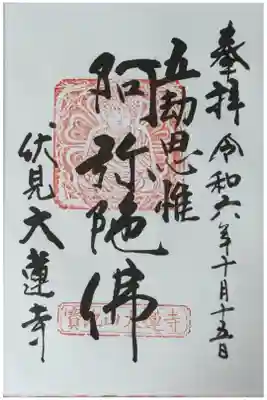 奉拝 令和六年十月十五日
五劫思惟
阿弥陀佛
伏見大蓮寺